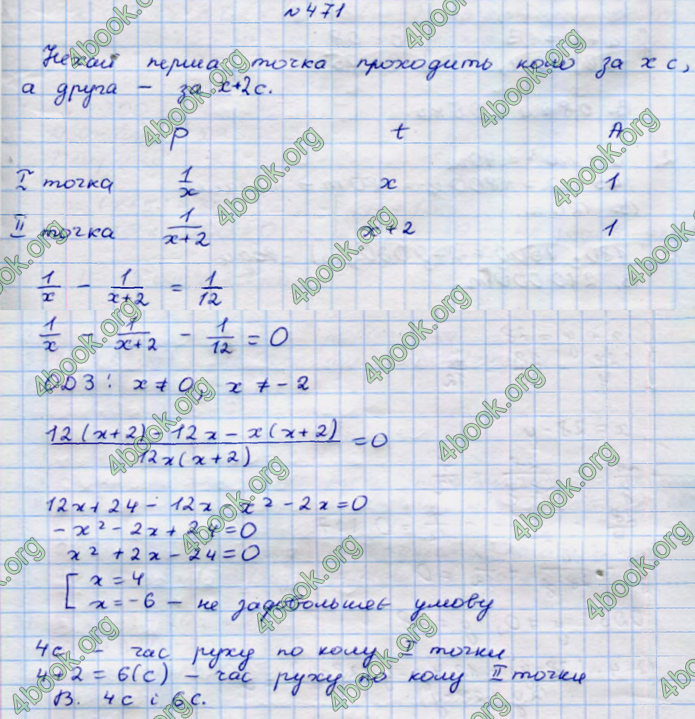 №471
Нехай перша точка проходить коло за x с,
а друга – за x+2 с.
P t A
I точка 1/x x 1
II точка 1/(x+2) x+2 1
1/x - 1/(x+2) = 1/12
1/x - 1/(x+2) - 1/12 = 0
ОДЗ: x ≠ 0, x ≠ -2
(12(x+2) - 12x - x(x+2))/(12x(x+2)) = 0
12x+24-12x-x²-2x=0
-x²-2x+24=0
x²+2x-24=0
[ x=4
x=-6 – не задовольняє умову
4с – час руху по колу I точки
4+2=6(с) – час руху по колу II точки
В. 4с і 6с.
4book.org